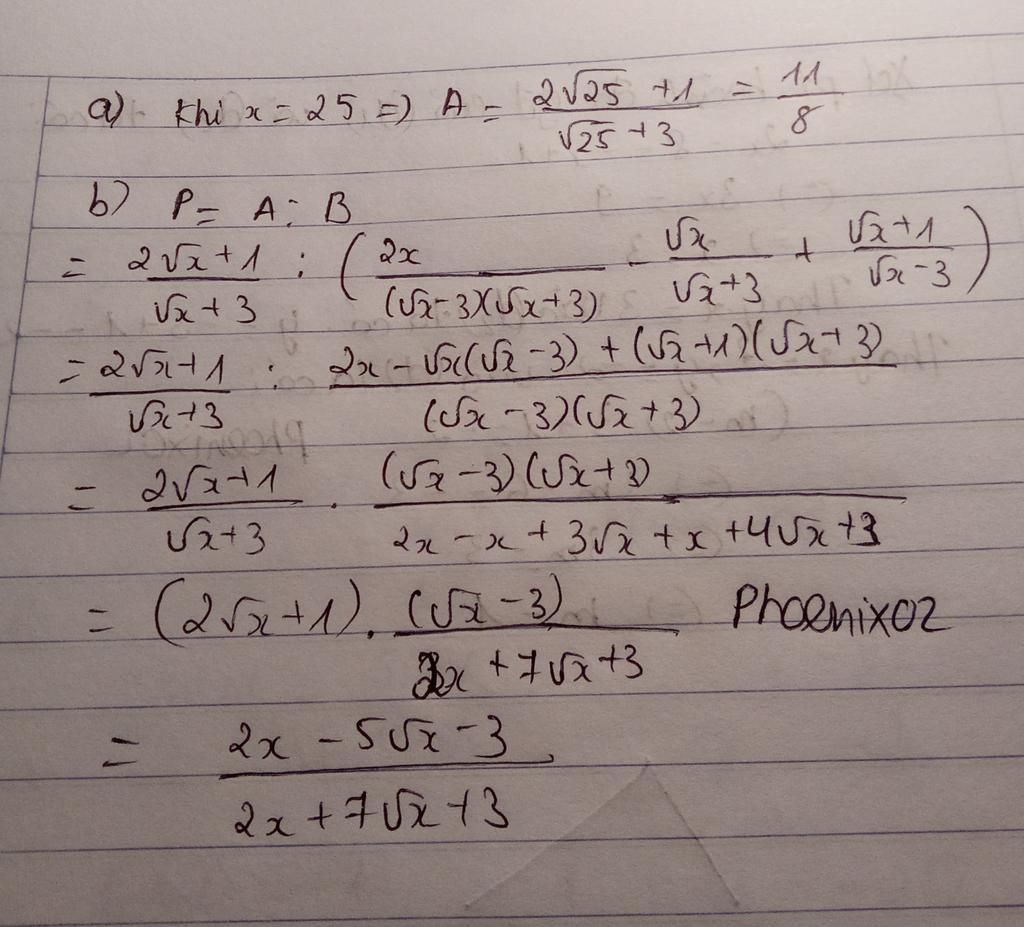 a) Khi x = 25 => A = (2√25 + 1)/(√25 + 3) = 11/8
b) P = A : B
= (2√x + 1)/(√x + 3) : (2x/((√x - 3)(√x + 3)) - √x/(√x + 3) + (√x + 1)/(√x - 3))
= (2√x + 1)/(√x + 3) : (2x - √x(√x - 3) + (√x + 1)(√x + 3))/((√x - 3)(√x + 3))
= (2√x + 1)/(√x + 3) . ((√x - 3)(√x + 3))/(2x - x + 3√x + x + 4√x + 3)
= (2√x + 1) . (√x - 3)/(2x + 7√x + 3) Phoenixoz
= (2x - 5√x - 3)/(2x + 7√x + 3)